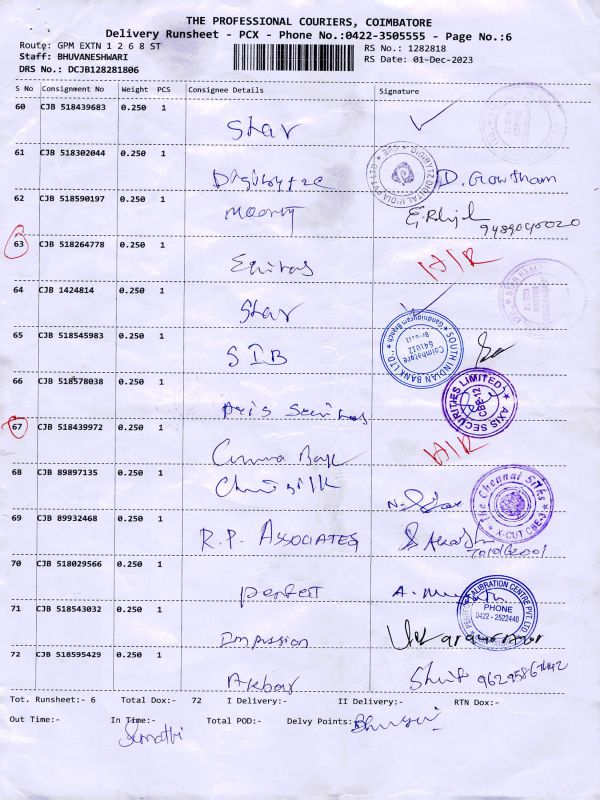 THE PROFESSIONAL COURIERS, COIMBATORE
Delivery Runsheet - PCX - Phone No.:0422-3505555 - Page No.:6
Route: GPM EXTN 1 2 6 8 ST
RS No.: 1282818
Staff: BHUVANESHWARI
RS Date: 01-Dec-2023
DRS No.: DCJB128281806
S No Consignment No Weight PCS Consignee Details Signature
60 CJB 518439683 0.250 1
Star
61 CJB 518302044 0.250 1
D. Gowtham
62 CJB 518590197 0.250 1
63 CJB 518264778 0.250 1
Equitas
64 CJB 1424814 0.250 1
Star
65 CJB 518545983 0.250 1
SIB
SOUTH INDIAN BANK LTD. Gandhipuram Branch Coimbatore 641012
66 CJB 518578038 0.250 1
Axis Securities
AXIS SECURITIES LIMITED CBE-12
67 CJB 518439972 0.250 1
68 CJB 89897135 0.250 1
The Chennai Silks X-CUT CBE-3
69 CJB 89932468 0.250 1
R.P. ASSOCIATES
70 CJB 518029566 0.250 1
perfect
PHONE 0422-2522440
71 CJB 518543032 0.250 1
Impression
72 CJB 518595429 0.250 1
Akbar
Tot. Runsheet:- 6 Total Dox:- 72 I Delivery:- II Delivery:- RTN Dox:-
Out Time:- In Time:- Total POD:- Delvy Points:-